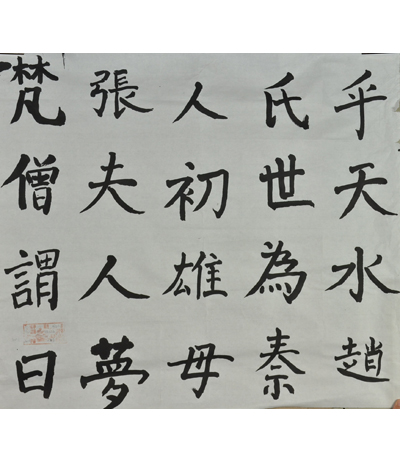 乎天水趙
氏世為秦
人初雄母
張夫人夢
梵僧謂曰